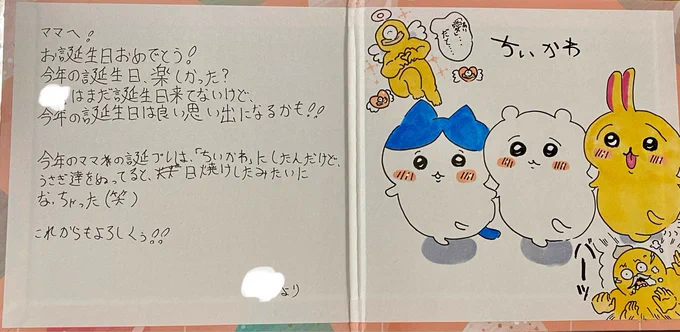 ママへ!
お誕生日おめでとう!
今年の誕生日、楽しかった?
はまだ誕生日来てないけど、
今年の誕生日は良い思い出になるかも!!
今年のママの誕プレは、「ちいかわ」にしたんだけど、
うさぎ達をぬってると、日焼けしたみたいに
なっちゃった(笑)
これからもよろしくぅ!!
より
ちいかわ
バーッ